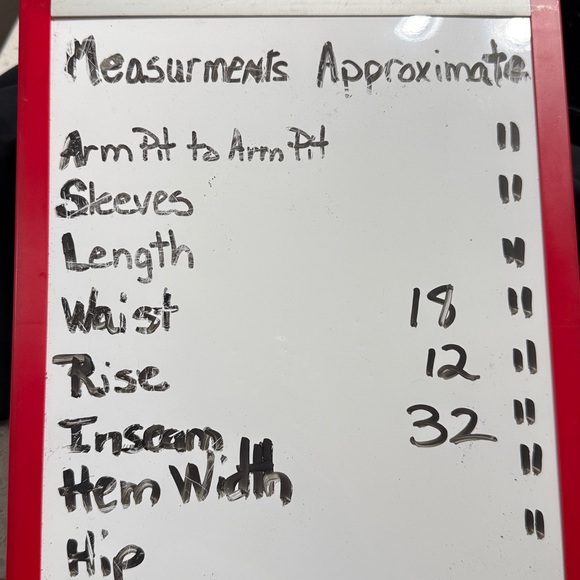 Measurments Approximate
Arm Pit to Arm Pit "
Sleeves "
Length "
Waist 18 "
Rise 12 "
Inseam 32 "
Hem Width "
Hip "